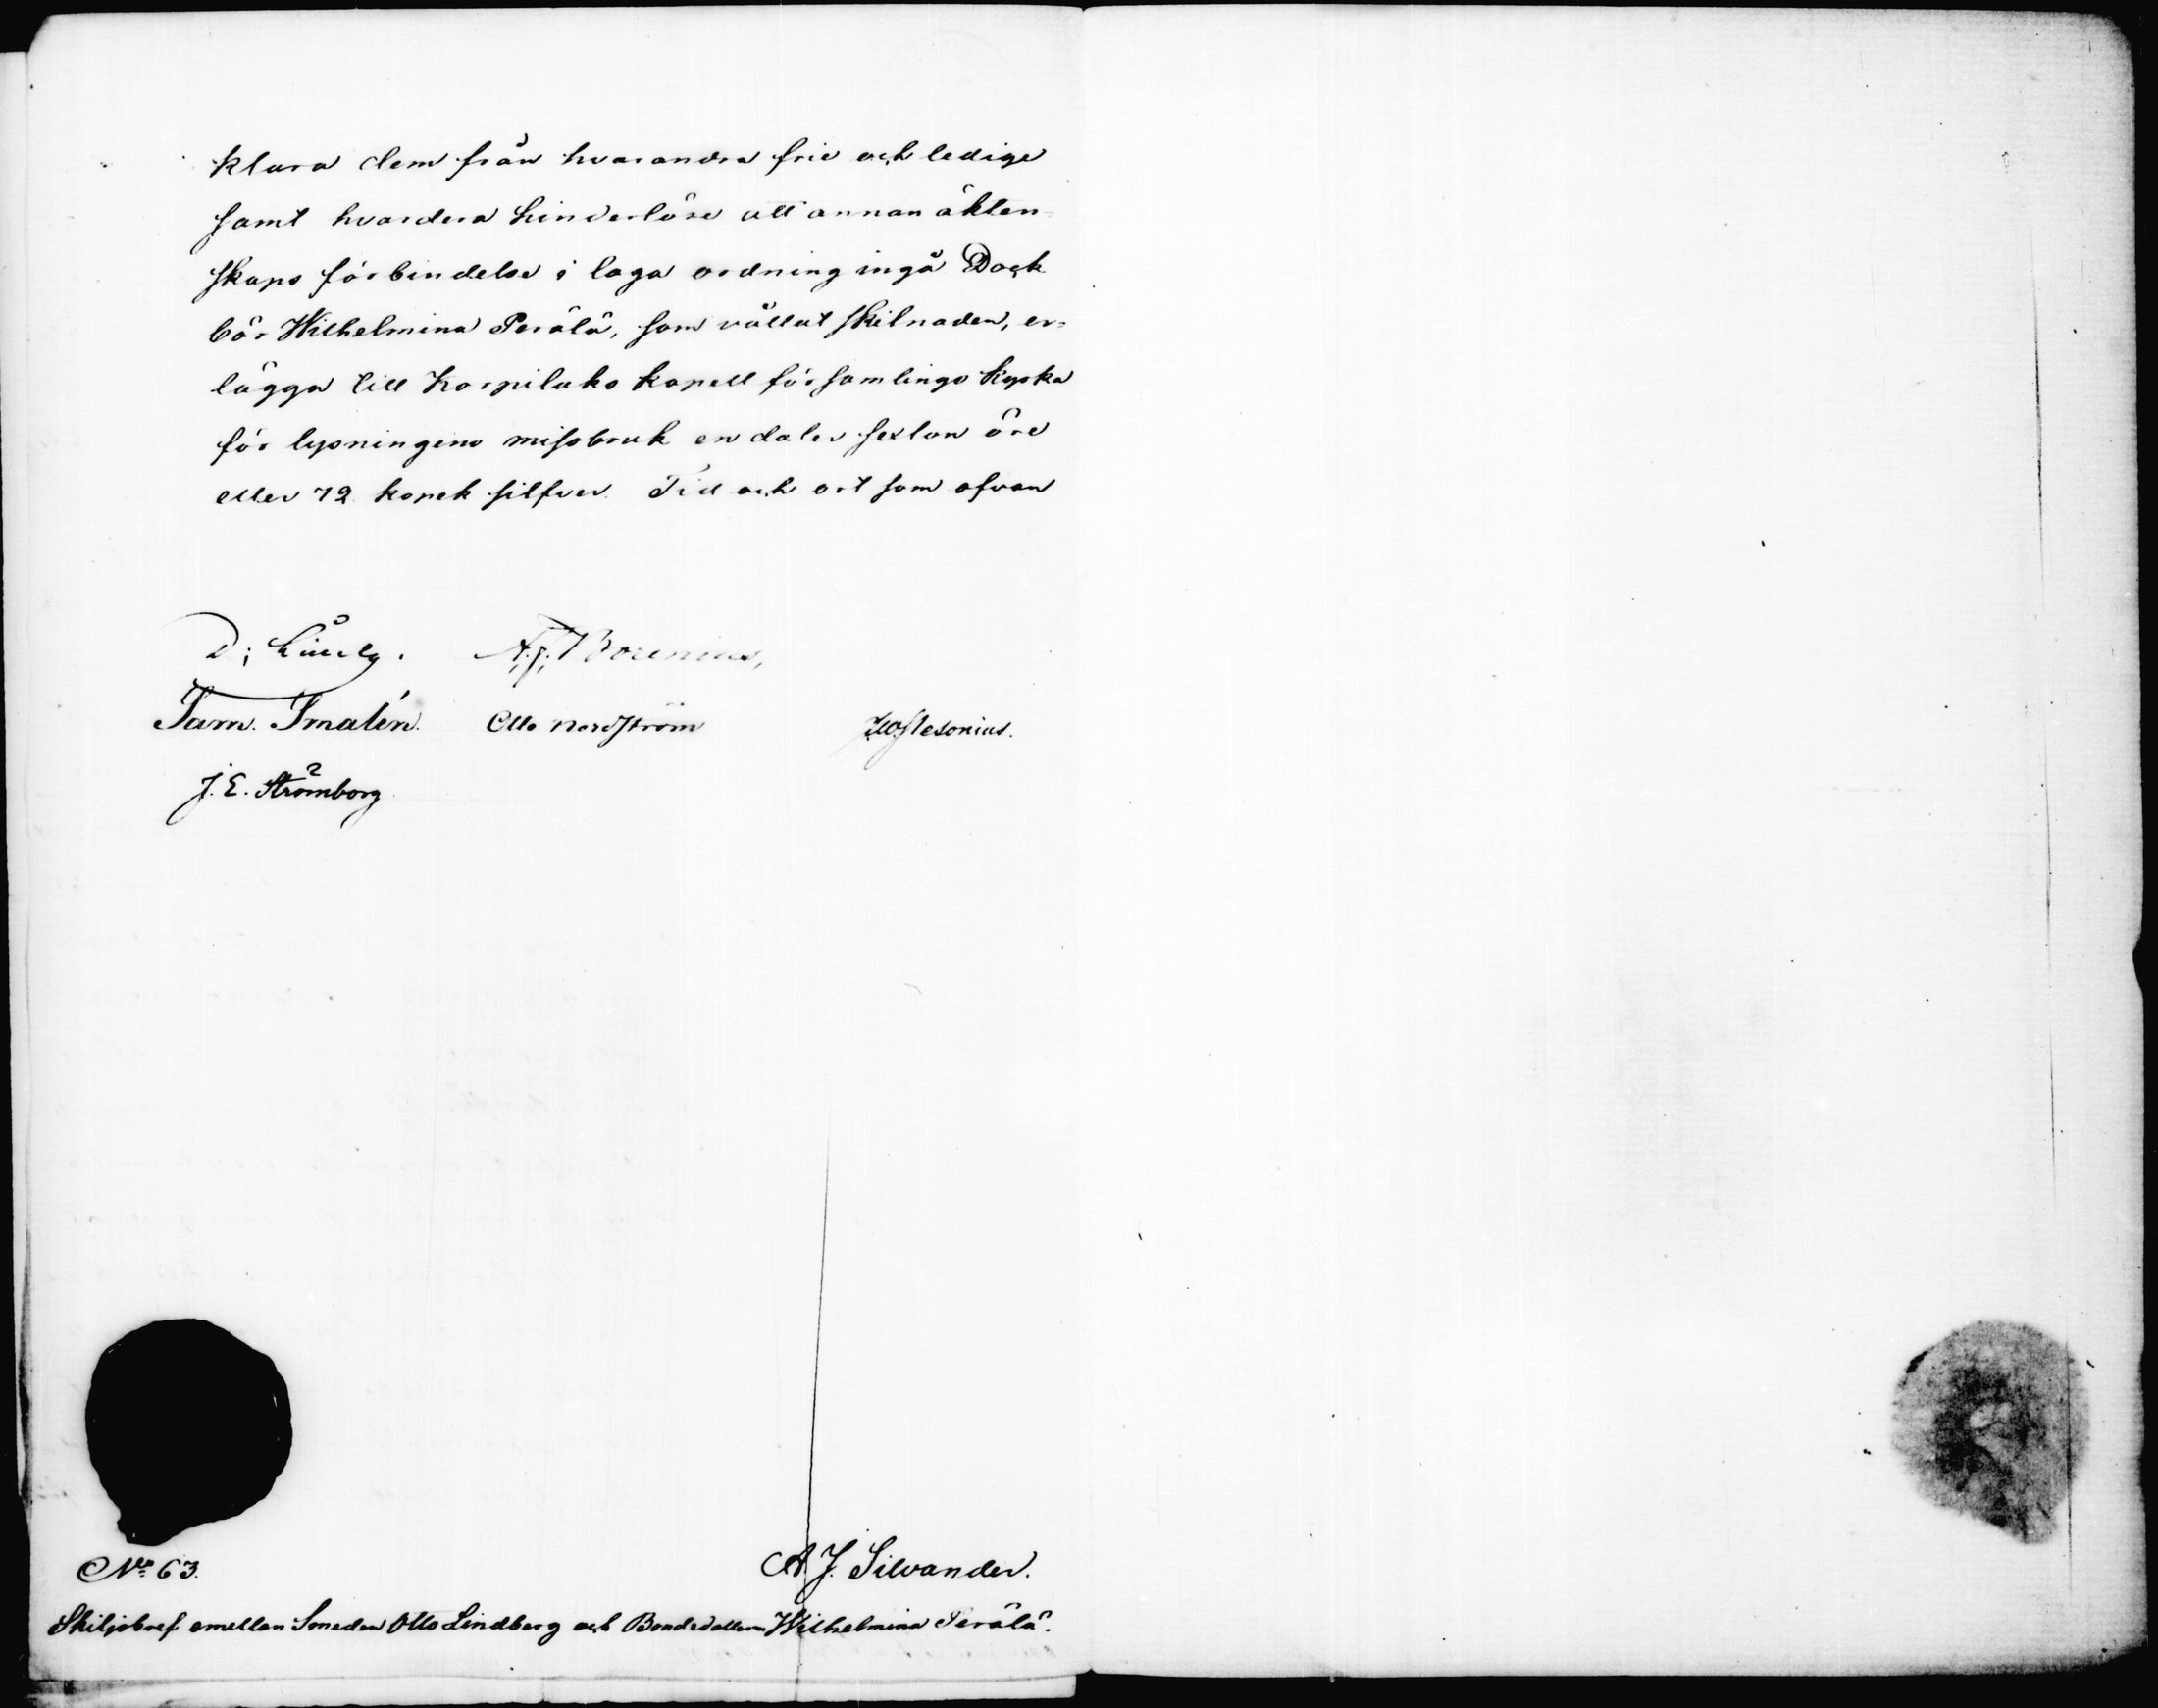 klara dem från hvarandra frie och ledige
samt hvardera hinderlöse att annan äkten-
skaps förbindelse i laga ordning ingå Dock
bör Wilhelmina Perälä, som vållat skilnaden, er-
lägga till Korpilaks kapell församlings kyrka
för lysningens missbruk en daler sexton öre
eller 72 kopek silfver. Tid och ort som ofvan
A. J. Borenius,
Sam. Smalén. Otto Nordström
J. E. Strömborg
No 63. A. J. Silvander.
Skiljobref emellan Smeden Otto Lindberg och Bondedottern Wilhelmina Perälä.